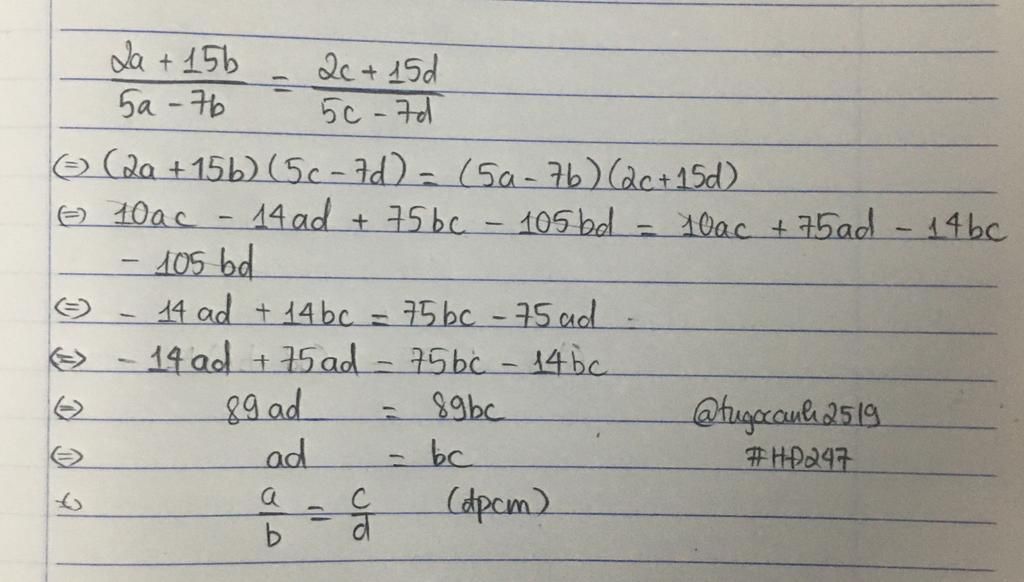 (2a + 15b)/(5a - 7b) = (2c + 15d)/(5c - 7d)
⇔ (2a + 15b)(5c - 7d) = (5a - 7b)(2c + 15d)
⇔ 10ac - 14ad + 75bc - 105bd = 10ac + 75ad - 14bc
- 105bd
⇔ - 14ad + 14bc = 75bc - 75ad
⇔ - 14ad + 75ad = 75bc - 14bc
⇔ 89ad = 89bc
@tugocanh2519
⇔ ad = bc
#HD247
⇔ a/b = c/d (dpcm)